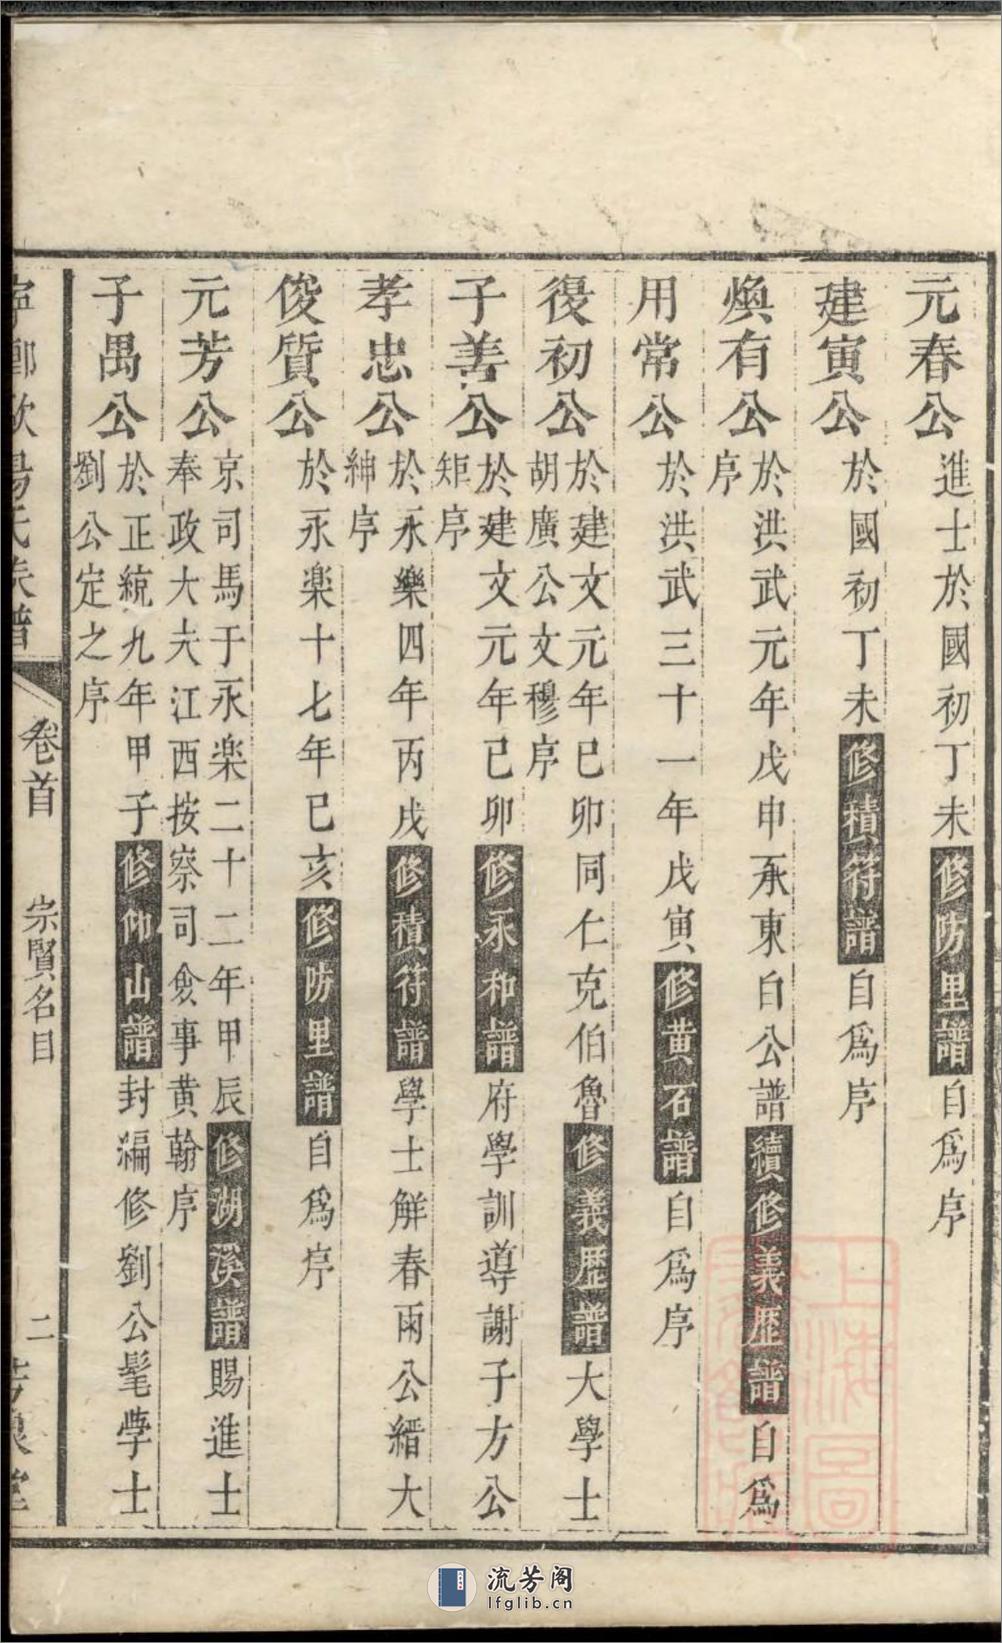 元春公進士於國初丁未修防里譜自爲序
建寅公於國初丁未修積符譜自爲序
煥有公於洪武元年戊申承東白公譜續修義歷譜自爲
序
用常公於洪武三十一年戊寅修黃石譜自爲序
復初公於建文元年巳卯同仁克伯魯修義歷譜大學士
胡廣公文穆序
子善公於建文元年巳卯修永和譜府學訓導謝子方公
矩序
孝忠公於永樂四年丙戌修積符譜學士解春雨公縉大
紳序
俊質公於永楽十七年巳亥修防里譜自爲序
元芳公京司馬于永楽二十二年甲辰修湖溪譜賜進士
奉政大夫江西按察司僉事黃翰序
子禺公於正統九年甲子修仰山譜封編修劉公髦學士
劉公定之序
歐陽氏族譜
卷首
宗賢名目
二
流芳阁
lfglib.cn